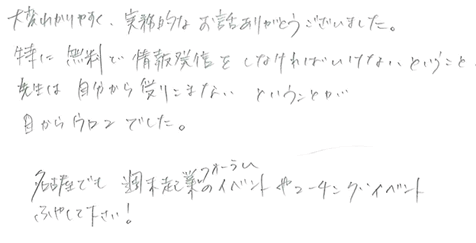 大変わかりやすく、実務的なお話ありがとうございました。
特に無料で情報発信をしなければいけないということ
先生は自分から売りこまない ということが
目からウロコでした。
名古屋でも 週末起業フォーラムのイベントやコーチング・イベント
ふやして下さい!